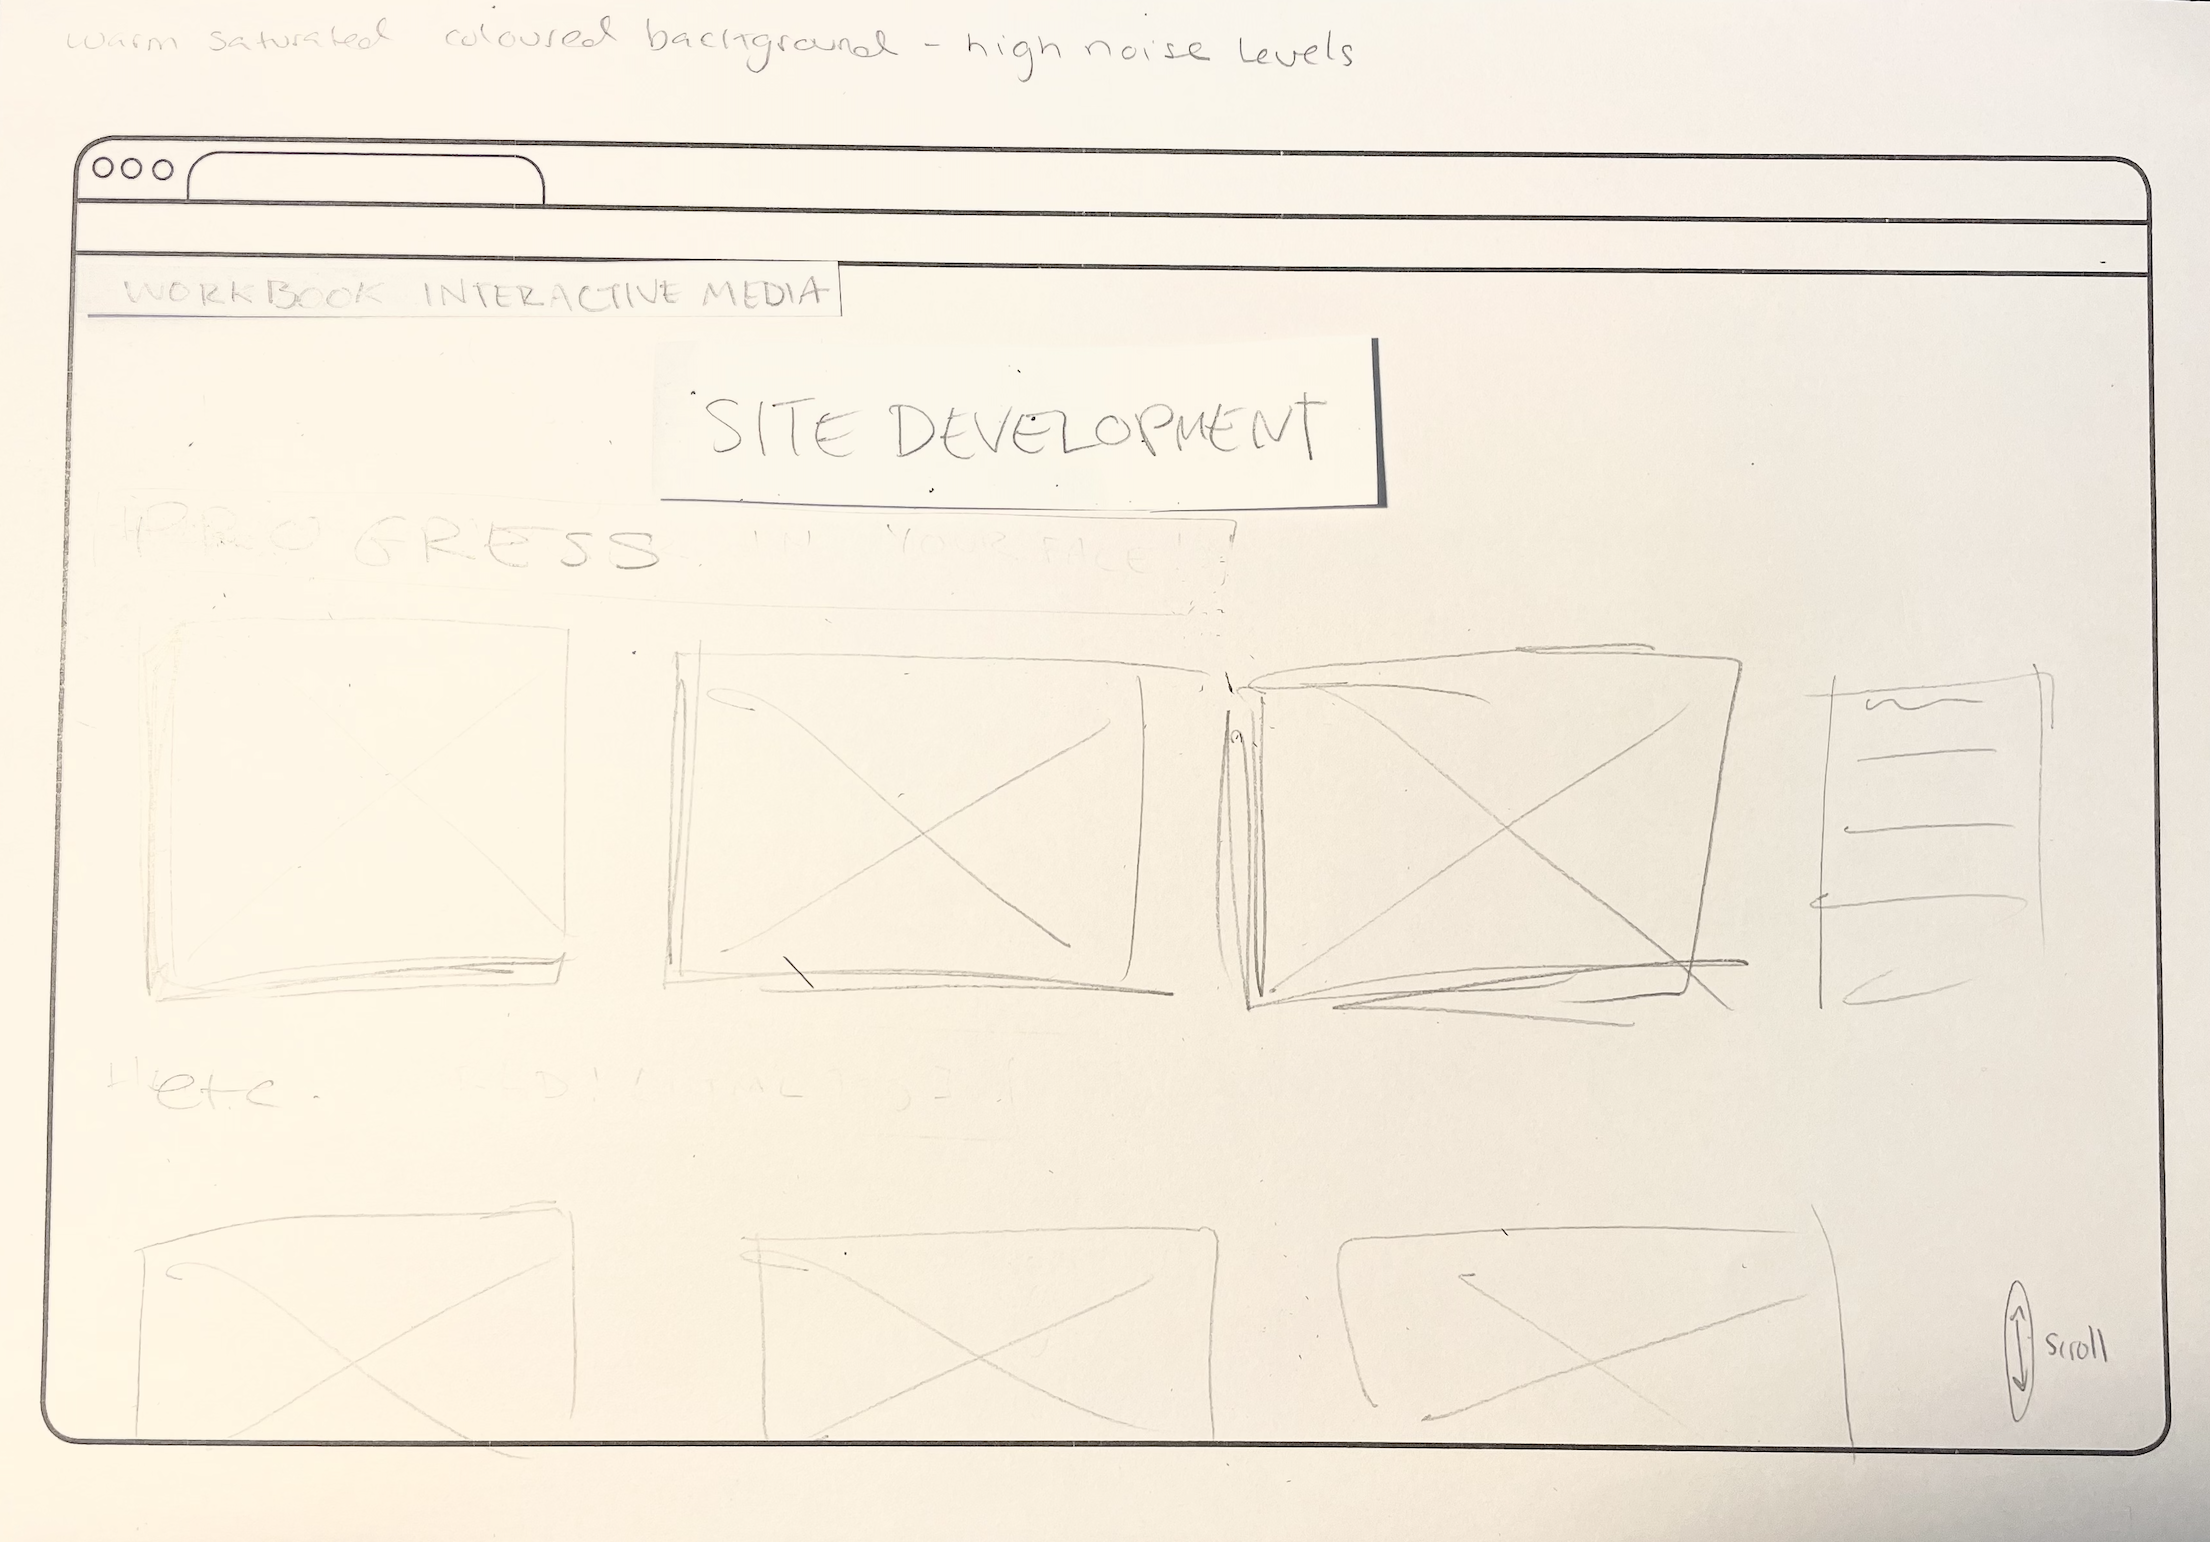 warm saturated coloured background - high noise levels
WORKBOOK INTERACTIVE MEDIA
SITE DEVELOPMENT
PROGRESS IN YOUR FACE
etc.
scroll